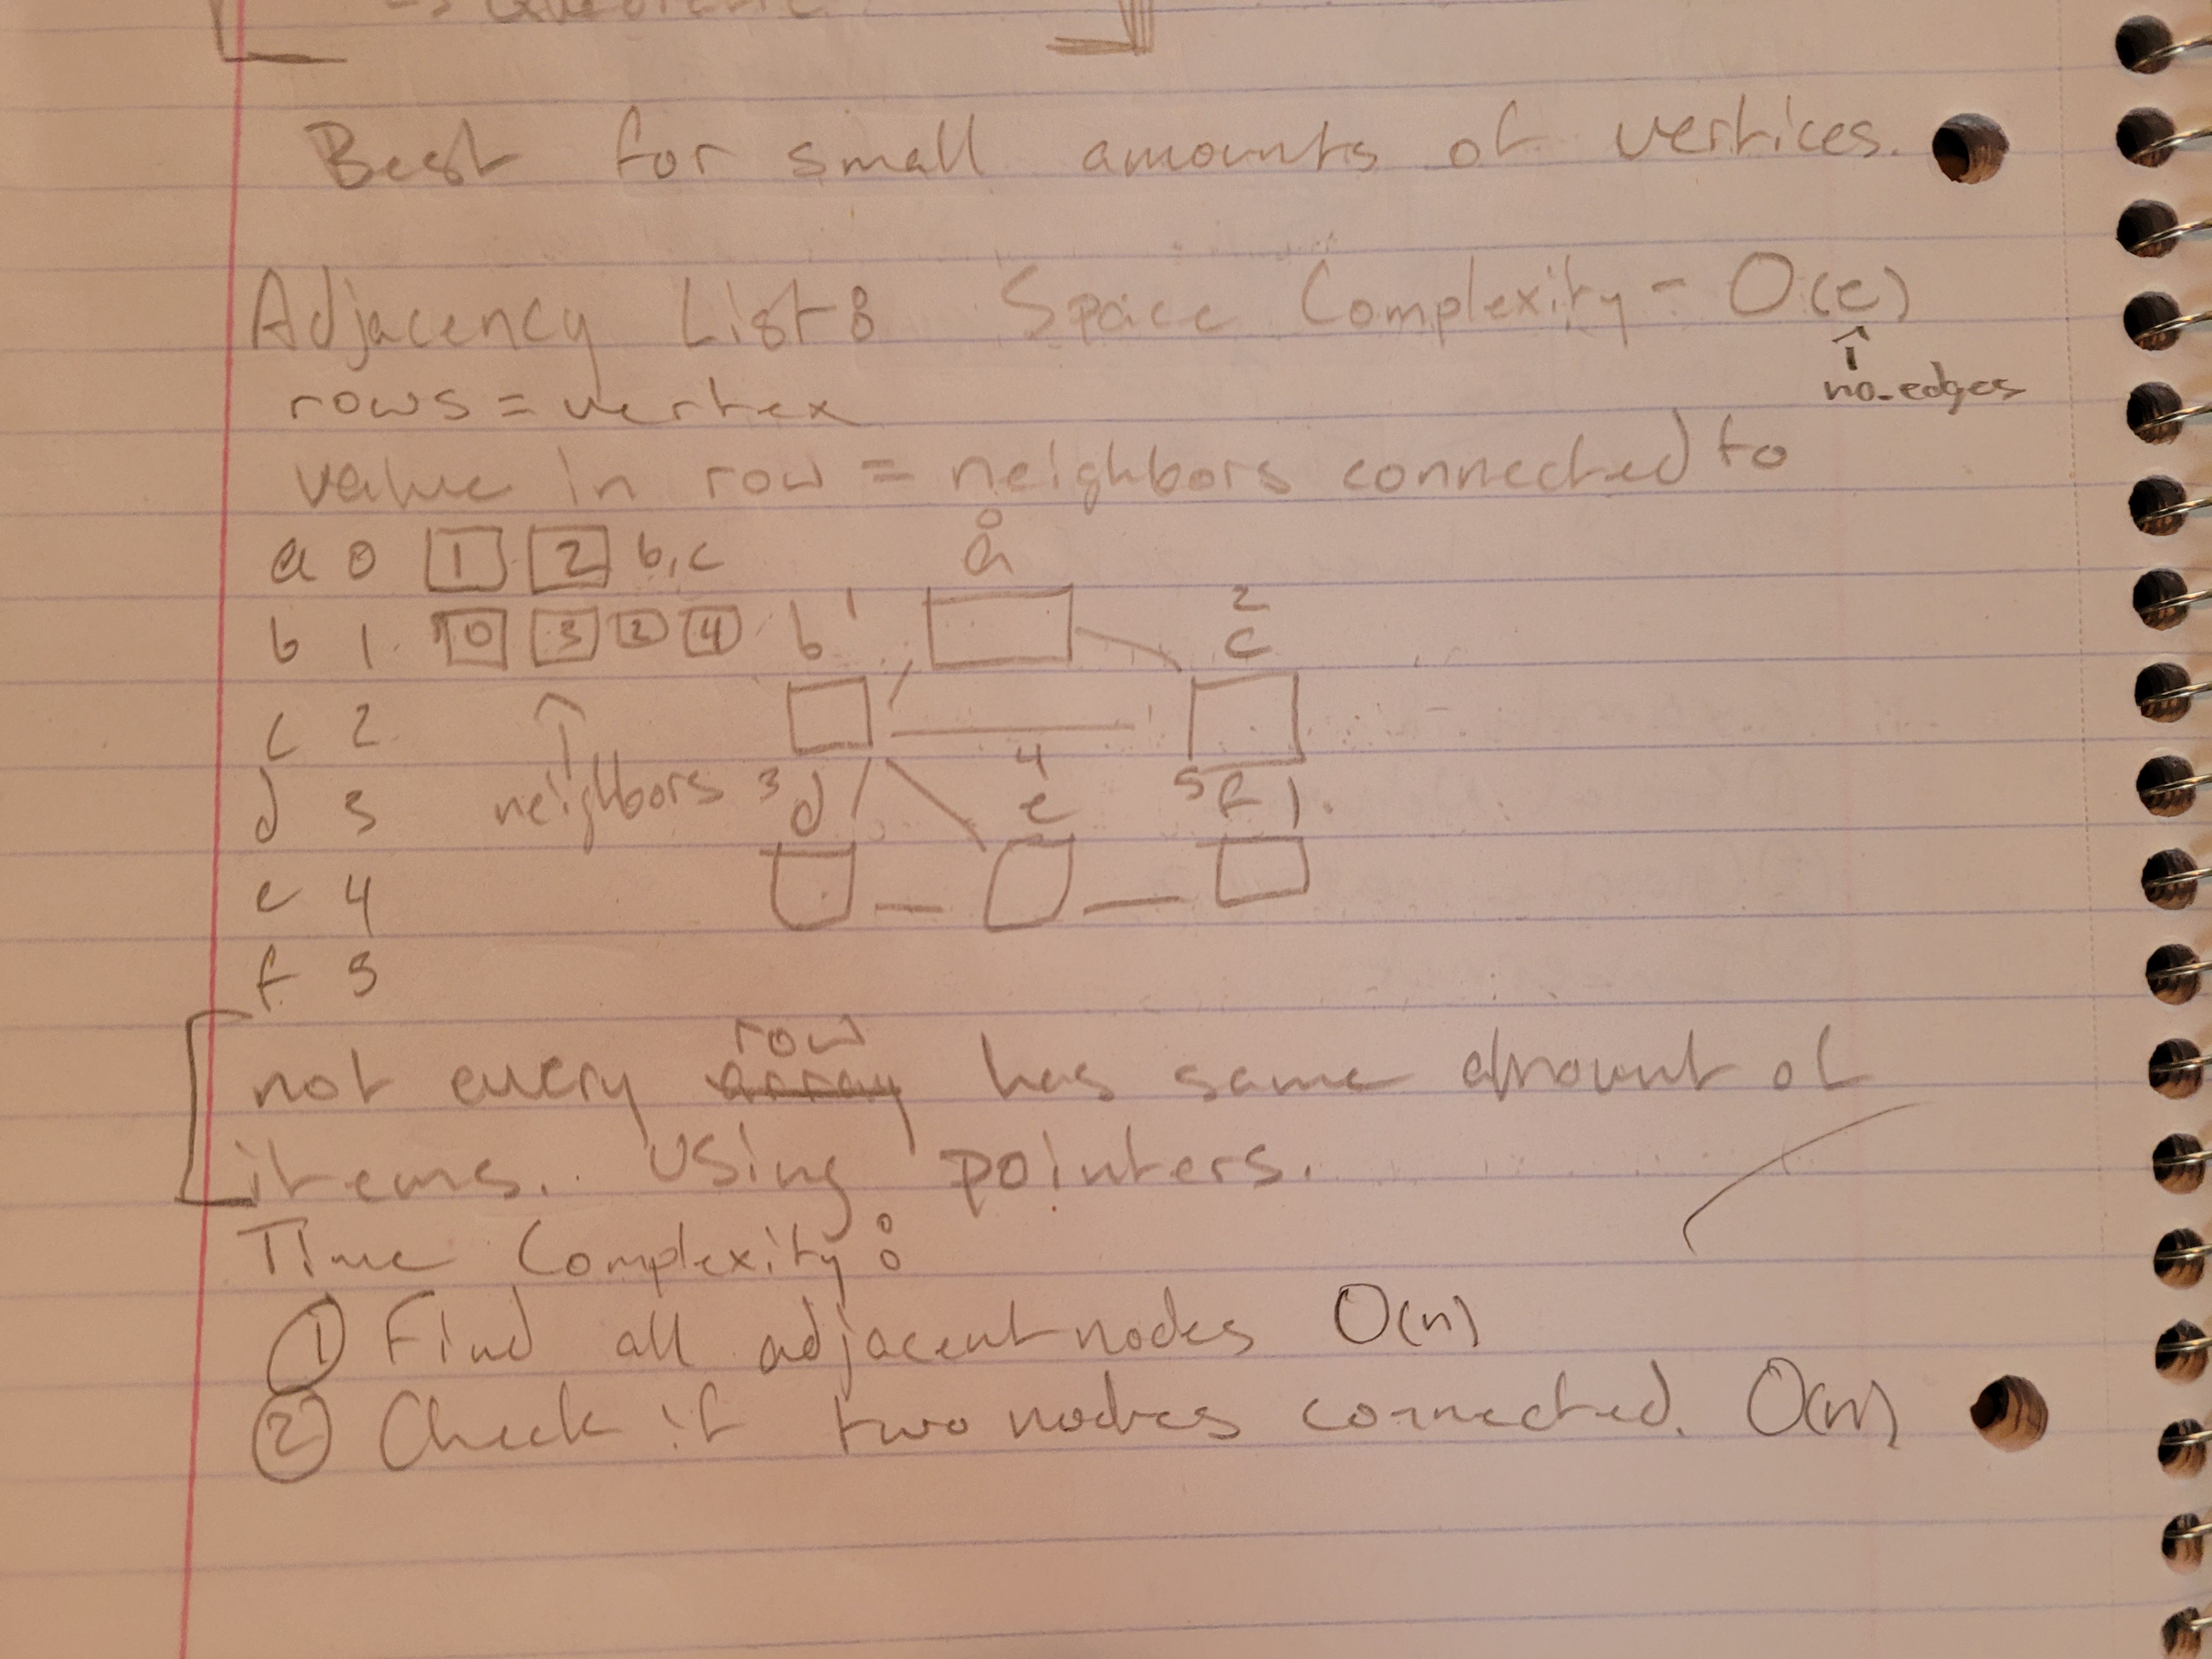 → Quadratic
Best for small amounts of vertices.
Adjacency List: Space Complexity - O(e)
↑
no. edges
rows = vertex
value in row = neighbors connected to
a 0 1 2 b,c
b 1 0 3 2 4
c 2
d 3
e 4
f 5
↑
neighbors
0
a
b 1
2
c
3 d
4
e
5 f
row
not every array has same amount of
items. Using pointers.
Time Complexity:
① Find all adjacent nodes O(n)
② Check if two nodes connected. O(n)